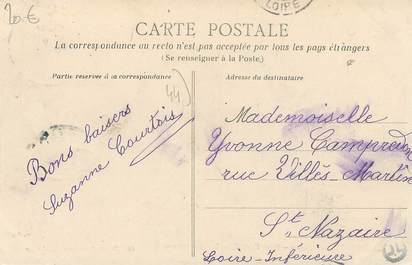 20 €
LOIRE
CARTE POSTALE
La correspondance au recto n'est pas acceptée par tous les pays étrangers
(Se renseigner à la Poste.)
Partie réservée à la correspondance
Adresse du destinataire
44
Bons baisers
Suzanne Courtois
Mademoiselle
Yvonne
rue Villès-Martin
St Nazaire
Loire-Inférieure